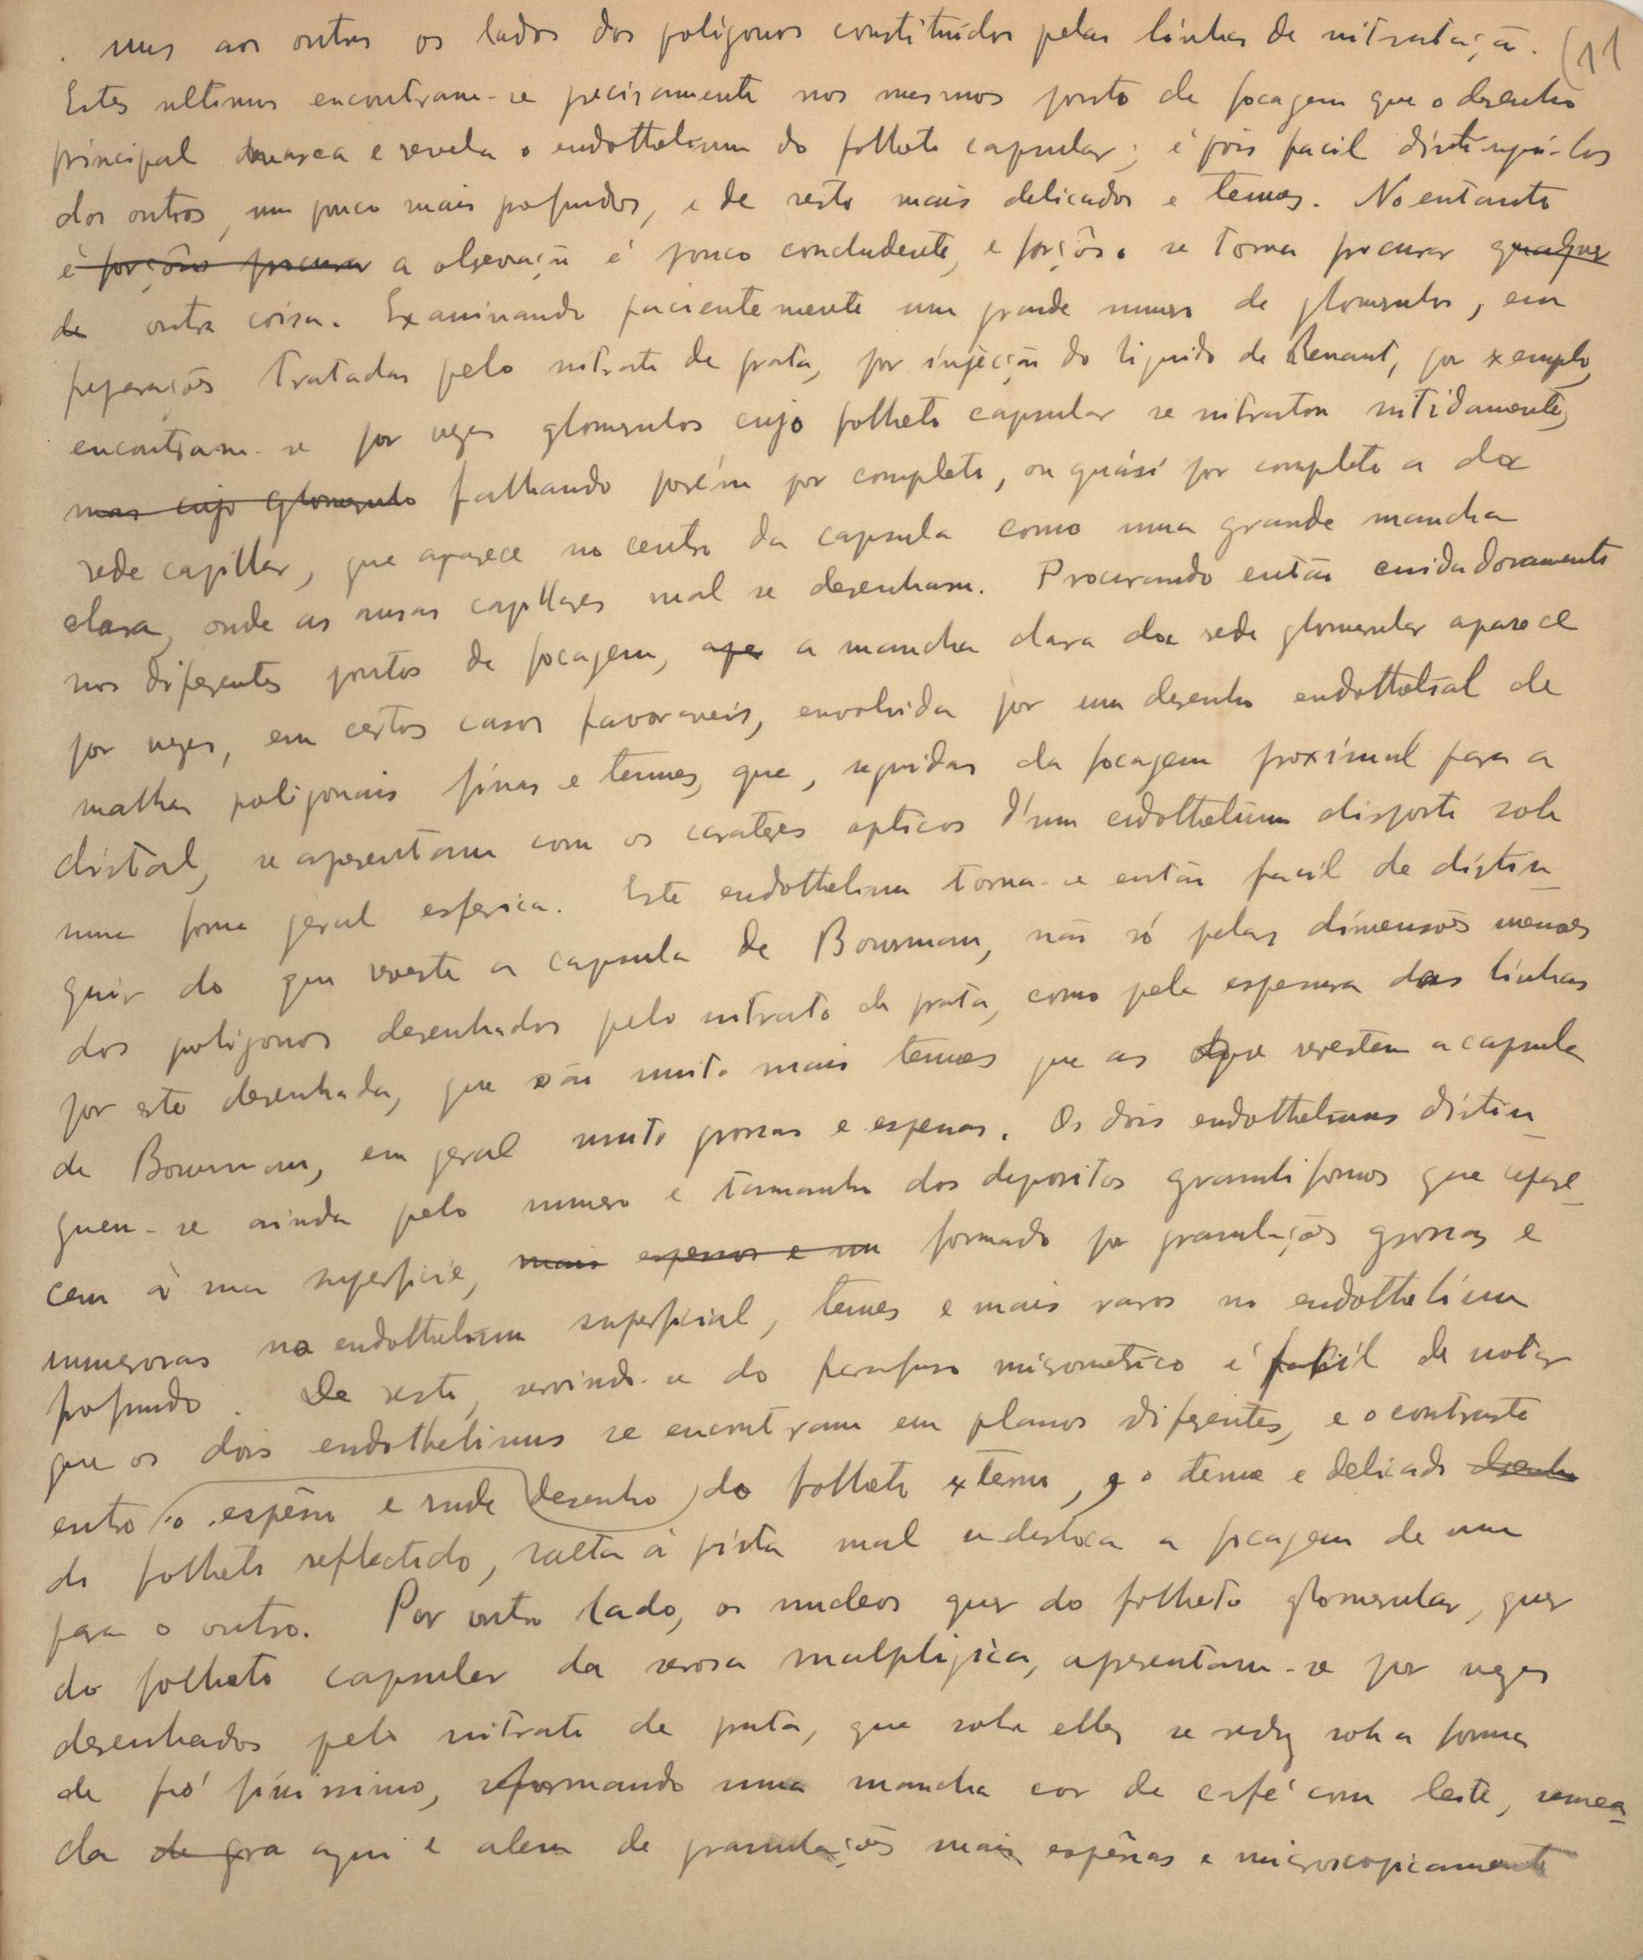 uns aos outros os lados dos poligonos constituidos pelas linhas de nitratação. (11
Estes ultimos encontram-se precisamente nos mesmos pontos de focagem que o desenho
principal demarca e revela o endothelium do folheto capsular; é pois facil distingui-los
dos outros, um pouco mais profundos, e de resto mais delicados e tenues. No entanto
é forçôso procurar a observação é pouco concludente, e forçôso se torna procurar qualquer
de outra coisa. Examinando pacientemente um grande numero de glomerulos, em
preparações tratadas pelo nitrato de prata, por injecção do liquido de Renaut, por exemplo,
encontram-se por vezes glomerulos cujo folheto capsular se nitratou nitidamente,
mas cujo glomerulo falhando porém por completo, ou quási por completo a da
rede capillar, que aparece no centro da capsula como uma grande mancha
clara, onde as ansas capillares mal se desenham. Procurando então cuidadosamente
nos diferentes pontos de focagem, ape a mancha clara da rede glomerular aparece
por vezes, em certos casos favoraveis, envolvida por um desenho endothelial de
malhas poligonais finas e tenues, que, seguidas da focagem proximal para a
distal, se apresentam com os carateres opticos d'um endothelium disposto sob
uma forma geral esferica. Este endothelium torna-se então facil de distin-
guir do que reveste a capsula de Bowman, não só pelas dimensões menores
dos poligonos desenhados pelo nitrato de prata, como pela espessura das linhas
por este desenhadas, que são muito mais tenues que as que revestem a capsula
de Bowman, em geral muito grossas e espessas. Os dois endotheliums distin-
guem-se ainda pelo numero e tamanho dos depositos granuliformes que apare-
cem á sua superficie, mais espessos e nu formado por granulações grossas e
numerosas no endothelium superficial, tenues e mais raros no endothelium
profundo. De resto, servindo-se do parafuso micrometrico é facil de notar
que os dois endotheliums se encontram em planos diferentes, e o contraste
entre o espêsso e rude desenho do folheto externo, e o tenue e delicado desenho
do folheto reflectido, salta á vista mal se desloca a focagem de um
para o outro. Por outro lado, os nucleos quer do folheto glomerular, quer
do folheto capsular da serosa malpighica, apresentam-se por vezes
desenhados pelo nitrato de prata, que sobre elles se reduz sob a forma
de pó finissimo, formando uma mancha cor de café com leite, semea-
da de gra aqui e alem de granulações mais espêssas e microscopicamente